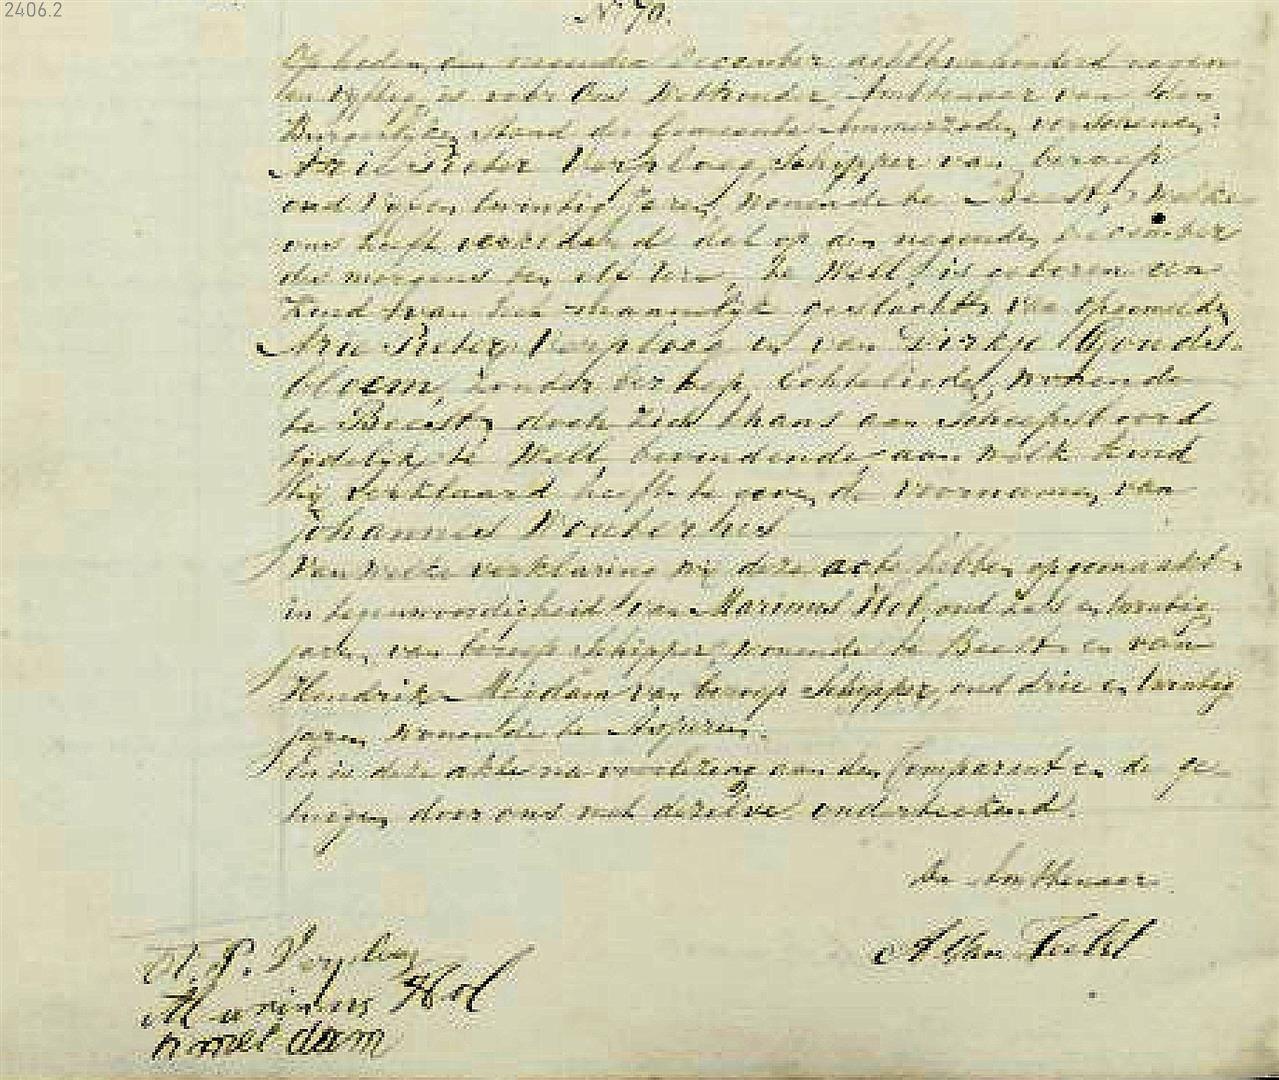 2406.2
No 70.
Op heden, den negenden December achttienhonderd negen
en vyftig, is voor Ons Wethouder, Ambtenaar van den
Burgerlijken Stand der Gemeente Ammerzoden verschenen:
Arie Pieter Verploeg, Schipper van beroep
oud vyf en twintig Jaren, wonende te Beest, welke
ons heeft verklaard dat op den negenden december
des morgens ten elf ure, te Well, is geboren een
Kind van het mannelijk geslacht, van opgemelde
Arie Pieter Verploeg en van Dirkje Gouds-
bloem, zonder beroep, Echtelieden, wonende
te Beest, doch zich thans aan scheepsboord
tydelijk te Well bevindende, aan welk Kind
hij verklaard heeft te geven de voornamen van
Johannes Wouterius
Van welke verklaring wij deze acte hebben opgemaakt
in tegenwoordigheid van Marinus Hol, oud en twintig
jaren, van beroep Schipper, wonende te Beest en van
Hendrik Meidam van beroep Schipper, oud drie en twintig
jaren wonende te Asperen.
En is deze akte na voorlezing aan den Comparant en de ge-
tuigen door ons met dezelve onderteekend.
De Ambtenaar
A. P. Verploeg
Marinus Hol